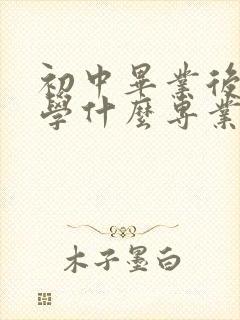 初中畢業後
學什麼專業
木子墨白